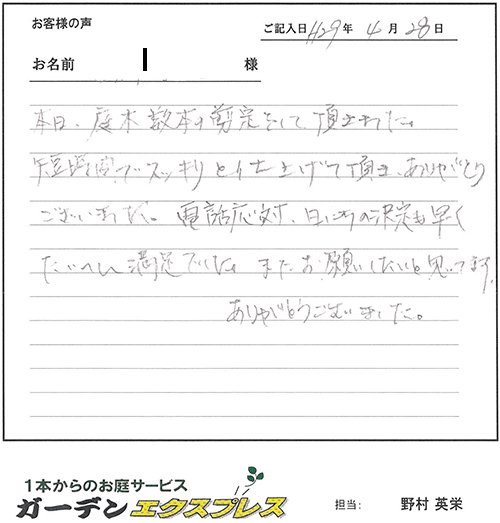 お客様の声
ご記入日 H29年 4月 28日
お名前 I 様
本日、庭木数本の剪定をして頂きました。
短時間でスッキリと仕上げて頂き、ありがとう
ございました。電話応対、日にちの決定も早く
たいへん満足でした。またお願いしたいと思ってます。
ありがとうございました。
1本からのお庭サービス
ガーデンエクスプレス
担当: 野村 英栄